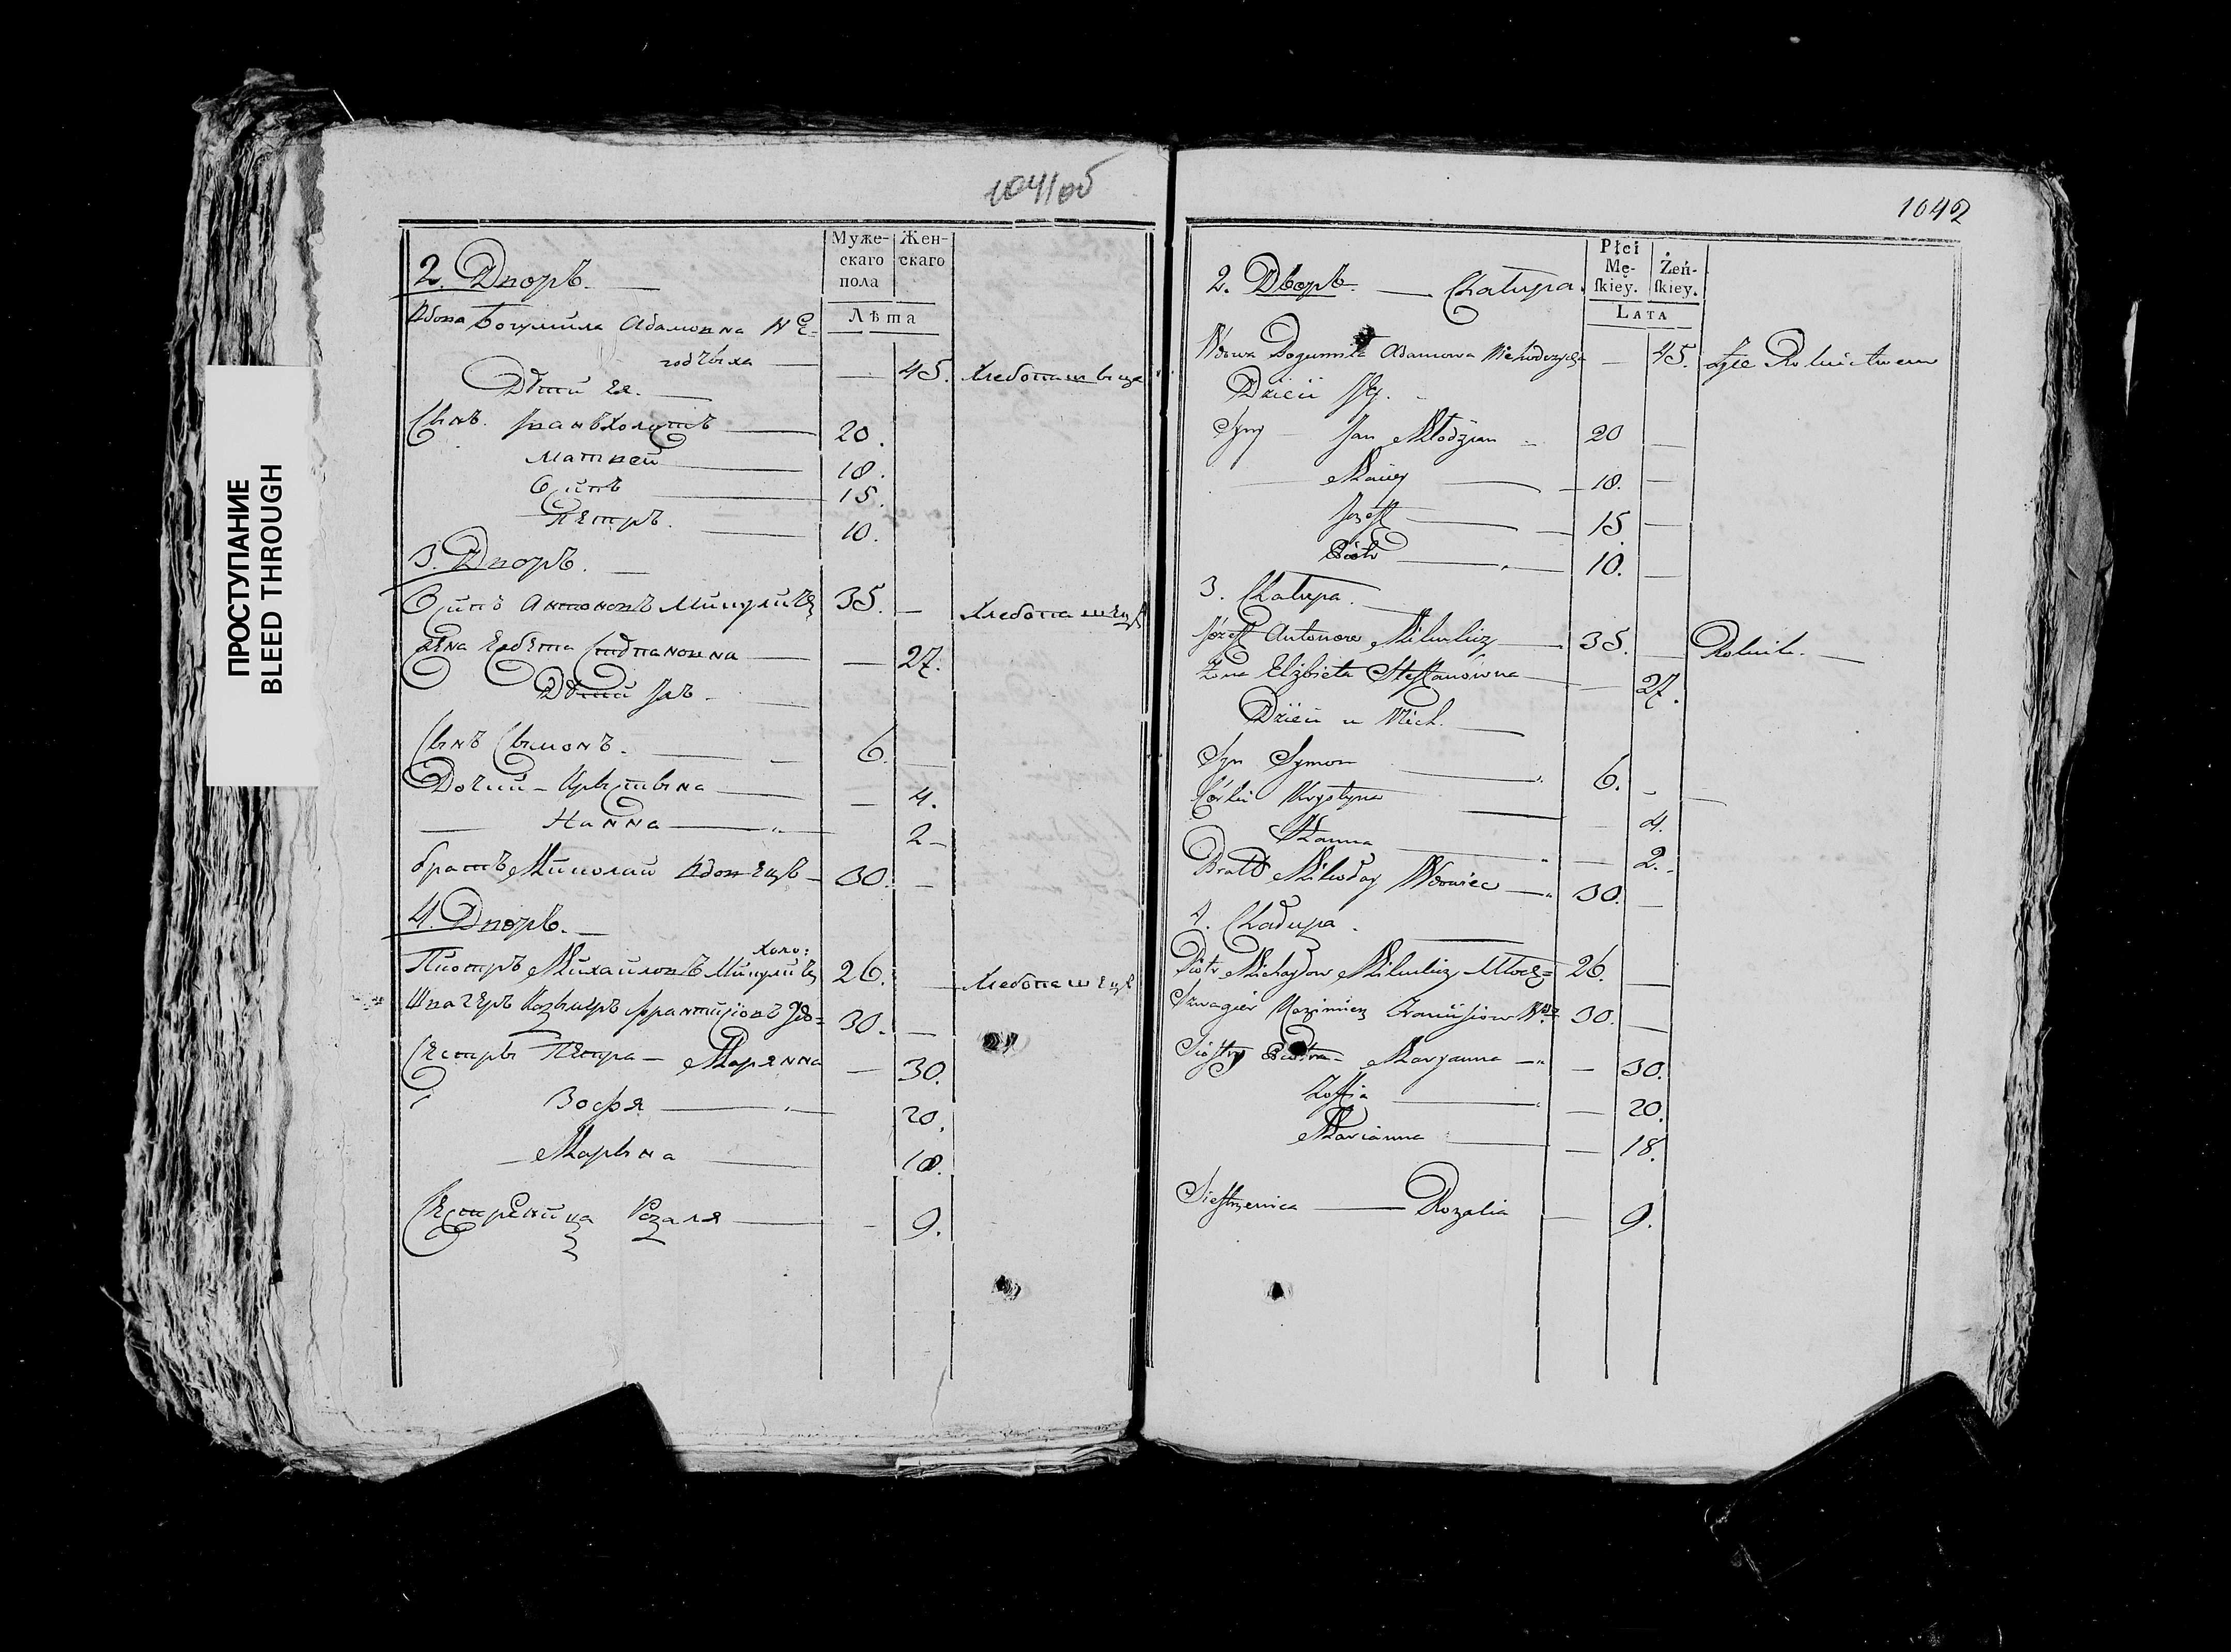 ПРОСТУПАНИЕ
BLEED THROUGH
1041об
Муже-
скаго
пола
Жен-
скаго
Лѣта
2. Дворъ. —
Вдова Богумила Адамовна Не-
годчыха — — 45. Хлебопашвица
Дѣти Ея. —
Сынъ. Иванъ Холостъ — 20.
Матвей — 18.
Осипъ — 15.
Петръ. — 10.
3. Дворъ. —
Осипъ Антоновъ Микуличъ 35. — Хлебопашецъ
Жена Елзбета Стэпановна — — 27.
Дѣти Ихъ. —
Сынъ Сымонъ. — 6.
Дочки — Крыстына — — 4.
— Ганна — 2 —
братъ Миколай Вдовецъ — 30. —
4. Дворъ. —
Холо:
Пиотръ Михайловъ Микуличъ 26. — Хлебопашецъ
Швагеръ Казымеръ 30. —
Сестры Петра — Марянна — 30.
Зофя — 20.
— Марына — 18.
Сестреница Розаля — — 9.
1042
Płci
Mę-
ſkiey.
Żeń-
ſkiey.
Lata
2. Дворъ. — Chałupa.
Wdowa Bogumiła Adamowa — 45. żyie Rolnictwem
Dzieci Jey.
Syny — Jan Młodzian 20 —
Maciey — 18. —
Jozeff — 15 —
Piotr — 10. —
3. Chałupa. —
Józeff Antonow Mikulicz — 35. — Rolnik. —
Żona Elżbieta Steffanowna — — 27.
Dzieci u Nich. —
Syn Symon — 6. —
Córki Krystyna — — 4.
Hanna — — 2. —
Bratt Mikołay Wdowiec — 30. —
4. Chałupa. —
Piotr Michayłow Mikulicz Młodz= 26. —
Szwagier Kazimierz 30. —
Siostry Piotra — Maryanna — — 30.
Zoffia — — 20.
Marianna — — 18.
Siestrzenica — Rozalia — 9.